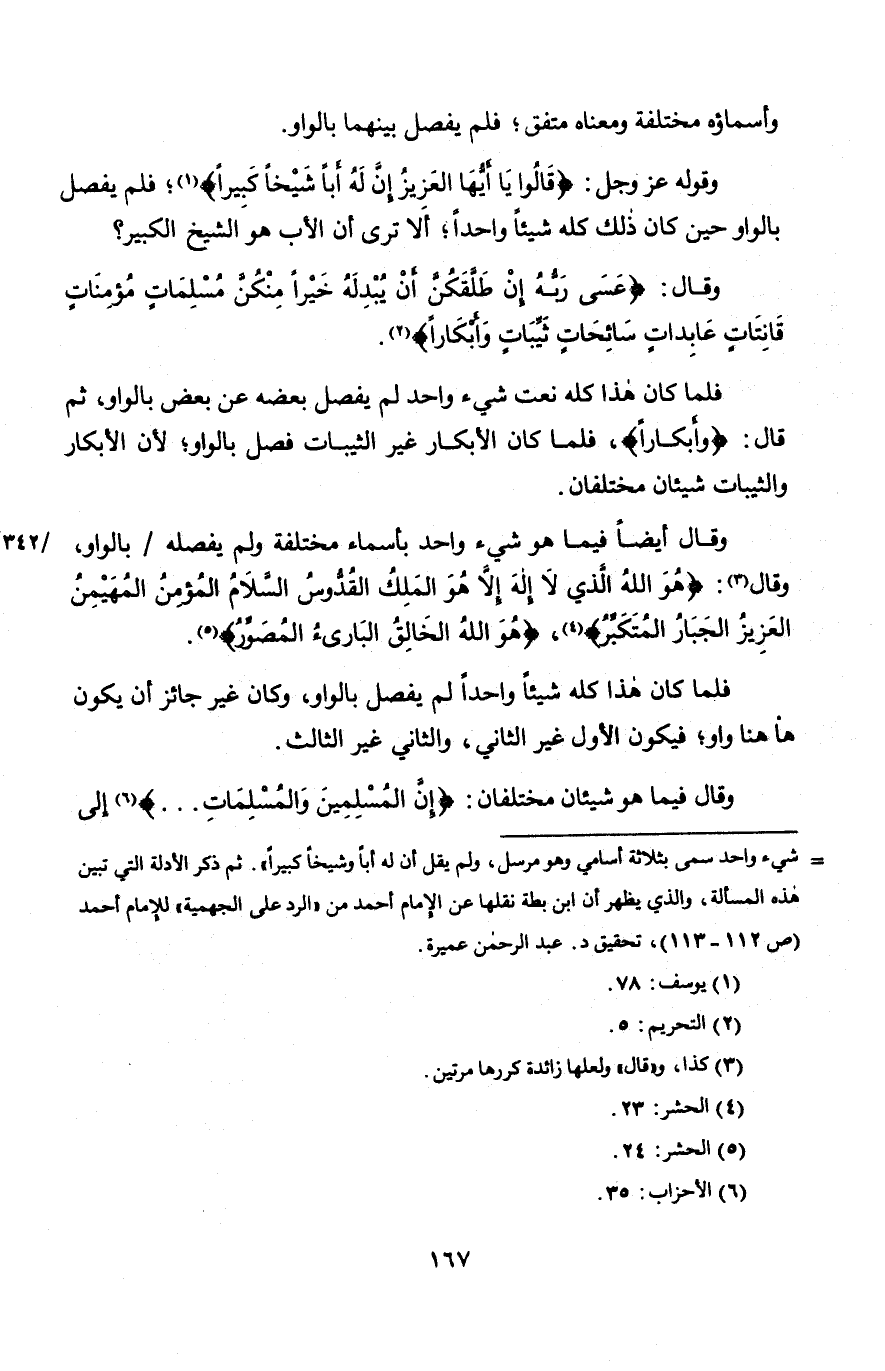 وأسماؤه مختلفة ومعناه متفق؛ فلم يفصل بينهما بالواو.
وقوله عز وجل: ﴿قَالُوا يَا أَيُّهَا العَزِيزُ إِنَّ لَهُ أَباً شَيْخاً كَبِيراً﴾(١)؛ فلم يفصل
بالواو حين كان ذٰلك كله شيئاً واحداً؛ ألا ترى أن الأب هو الشيخ الكبير؟
وقـال: ﴿عَسَى رَبُّـهُ إِنْ طَلَّقَكُنَّ أَنْ يُبْدِلَهُ خَيْراً مِنْكُنَّ مُسْلِمَاتٍ مُؤمِنَاتٍ
قَانِتَاتٍ عَابِداتٍ سَائِحَاتٍ ثَيِّبَاتٍ وَأَبْكَاراً﴾(٢).
فلما كان هٰذا كله نعت شيء واحد لم يفصل بعضه عن بعض بالواو، ثم
قال: ﴿وأبكـاراً﴾، فلمـا كان الأبكـار غير الثيبـات فصل بالواو؛ لأن الأبكار
والثيبات شيئان مختلفان.
وقـال أيضـاً فيمـا هو شيء واحد بأسماء مختلفة ولم يفصله / بالواو، /٣٤٢/
وقال(٣): ﴿هُوَ اللهُ الَّذي لَا إِلٰهَ إِلَّا هُوَ المَلِكُ القُدُّوسُ السَّلَامُ المُؤمِنُ المُهَيْمِنُ
العَزِيزُ الجَبَارُ المُتَكَبِّرُ﴾(٤)، ﴿هُوَ اللهُ الخَالِقُ البَارىءُ المُصَوِّرُ﴾(٥).
فلما كان هٰذا كله شيئاً واحداً لم يفصل بالواو، وكان غير جائز أن يكون
هٰا هنا واو؛ فيكون الأول غير الثاني، والثاني غير الثالث.
وقال فيما هو شيئان مختلفان: ﴿إِنَّ المُسْلِمِينَ وَالمُسْلِمَاتِ...﴾(٦) إلى
= شيء واحد سمى بثلاثة أسامي وهو مرسل، ولم يقل أن له أباً وشيخاً كبيراً». ثم ذكر الأدلة التي تبين
هٰذه المسألة، والذي يظهر أن ابن بطة نقلها عن الإمام أحمد من «الرد على الجهمية» للإمام أحمد
(ص ١١٢ - ١١٣)، تحقيق د. عبد الرحمٰن عميرة.
(١) يوسف: ٧٨.
(٢) التحريم: ٥.
(٣) كذا، و«قال» ولعلها زائدة كررها مرتين.
(٤) الحشر: ٢٣.
(٥) الحشر: ٢٤.
(٦) الأحزاب: ٣٥.
١٦٧